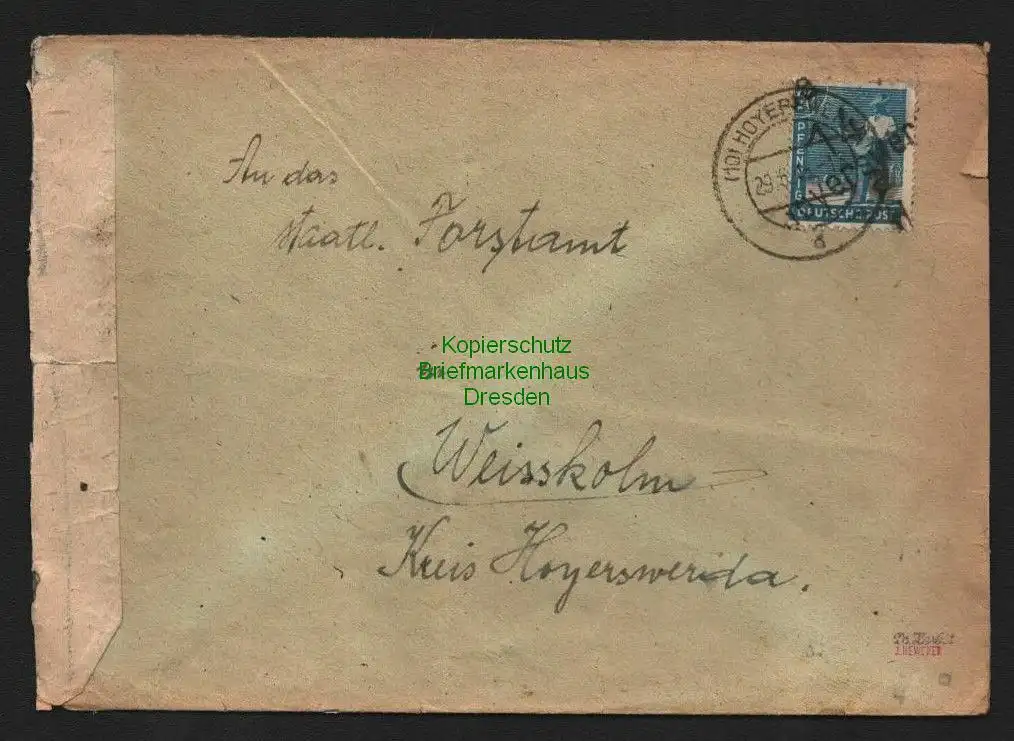 An das
staatl. Forstamt
(10) HOYERSW
29.6.
14
PFENNIG
DEUTSCHE POST
d
Kopierschutz
Briefmarkenhaus
Dresden
Weisskolm
Kreis Hoyerswerda.